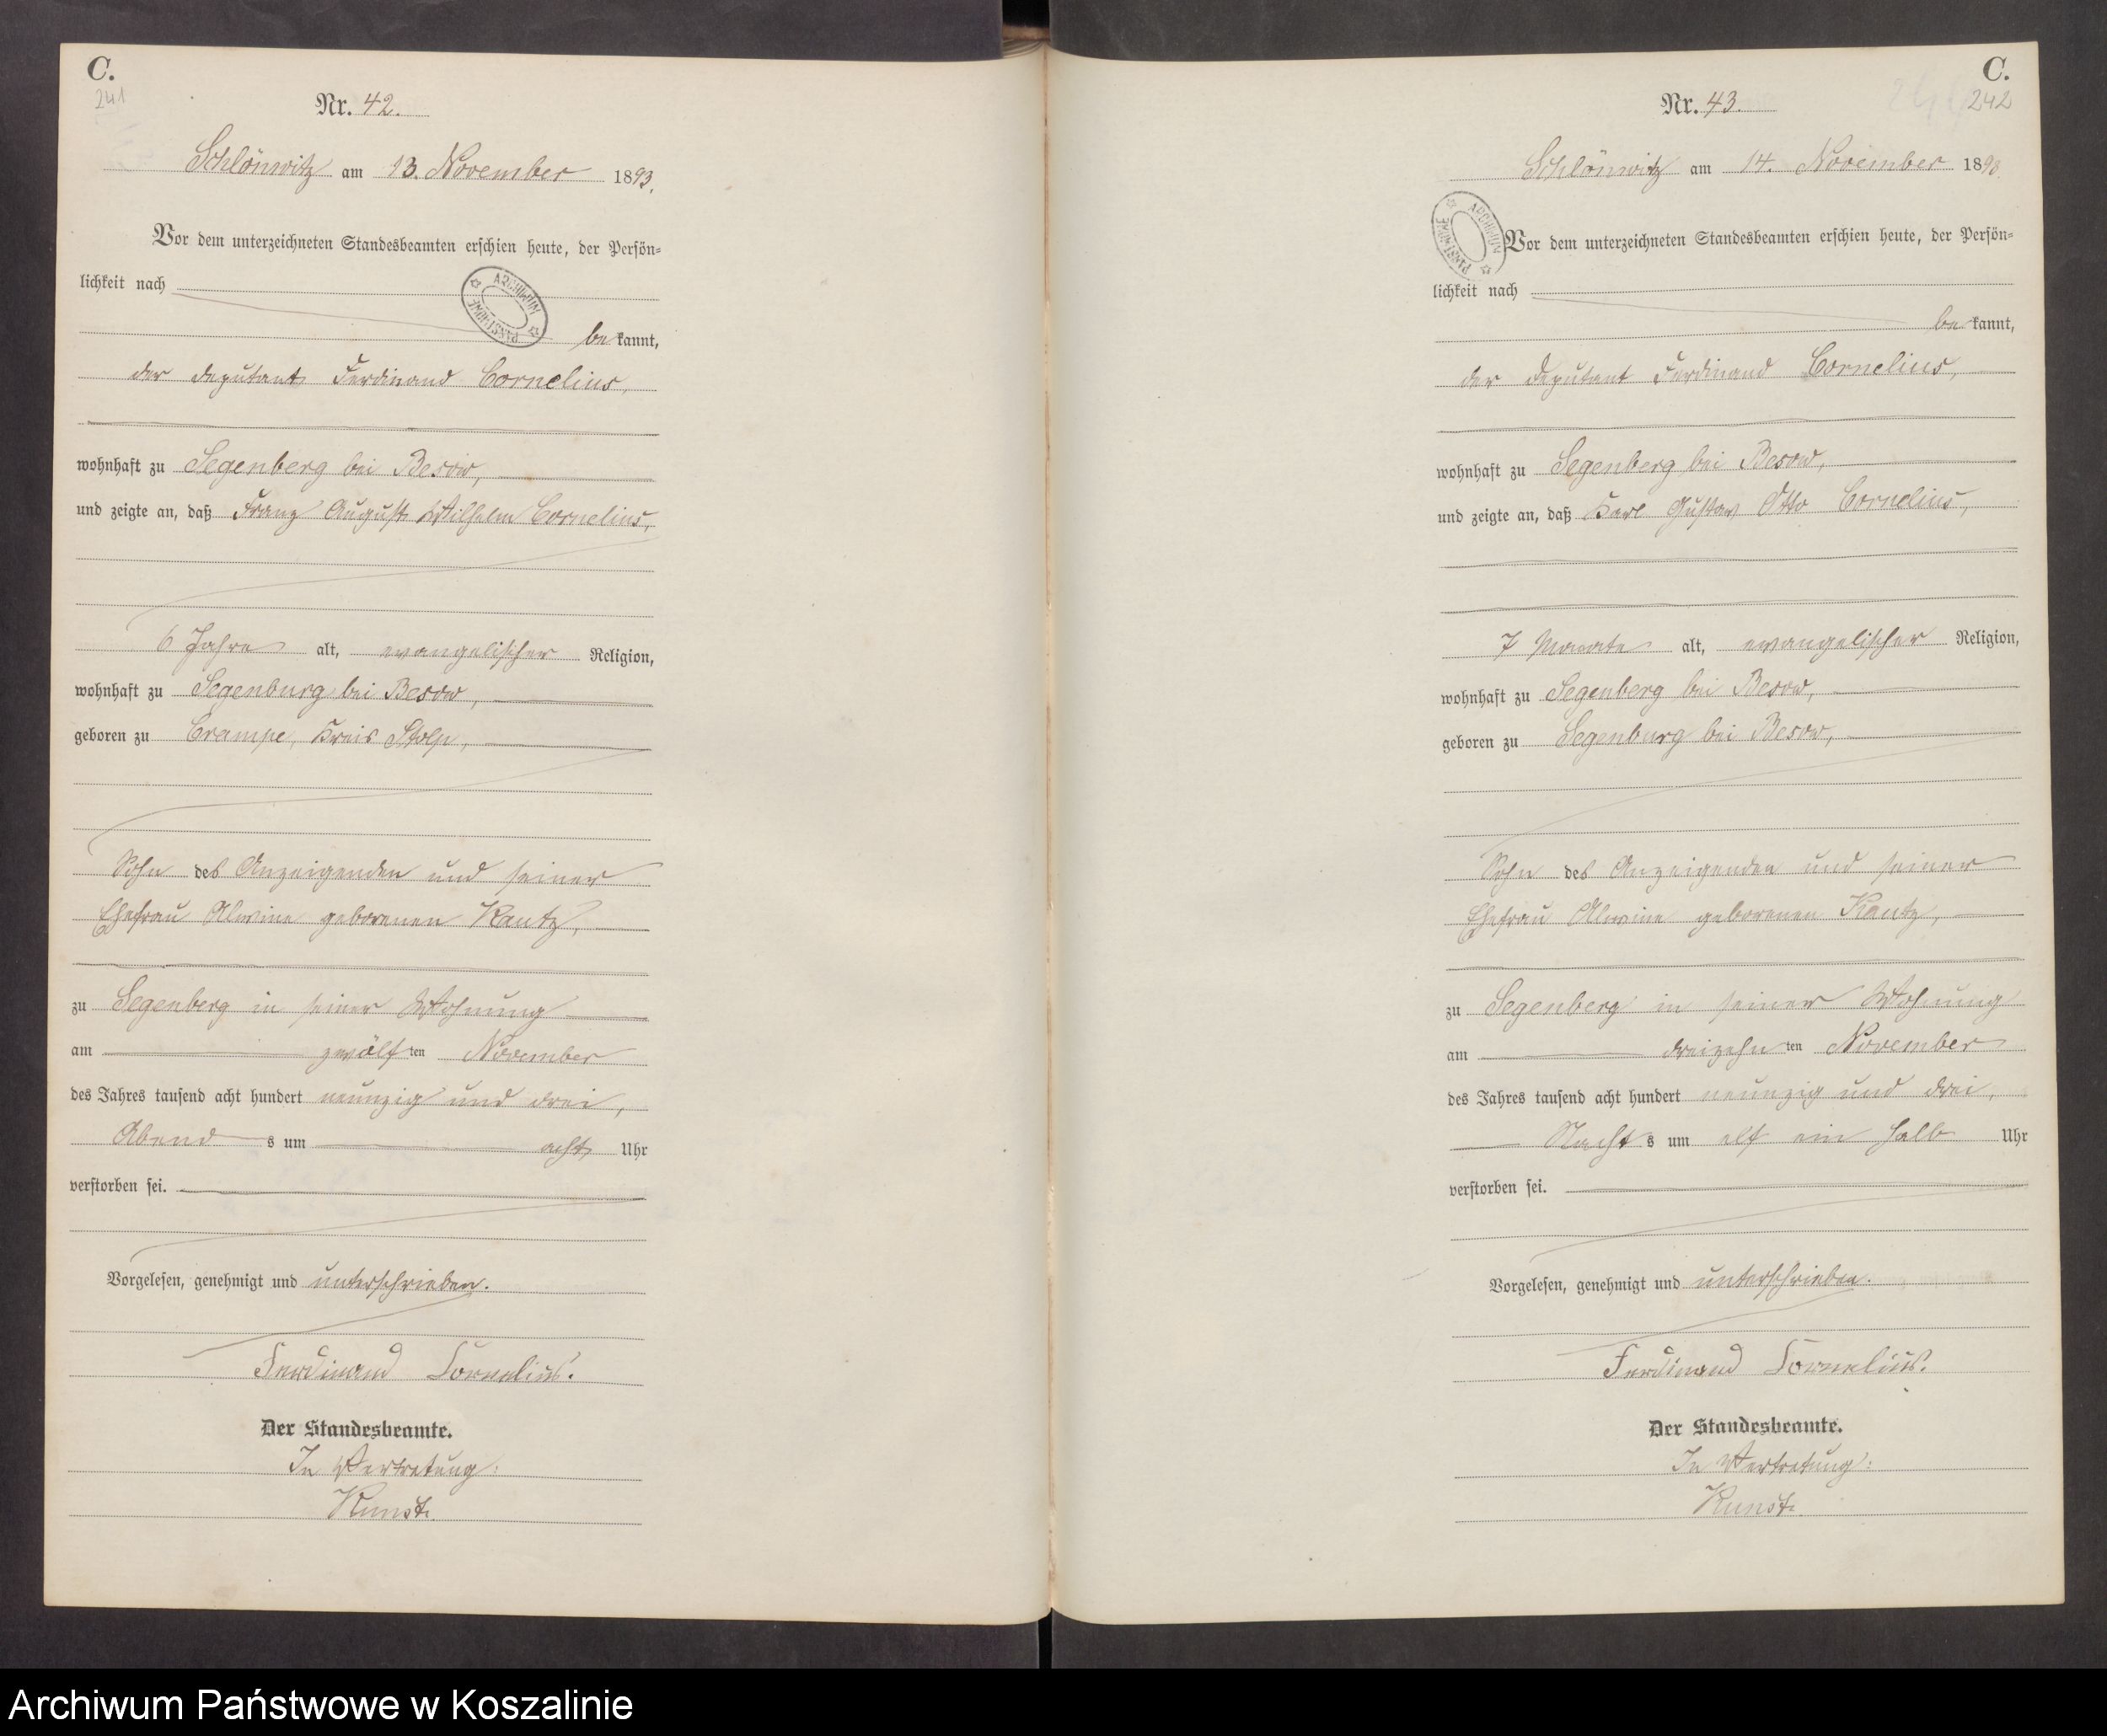 C.
241
Nr. 42.
Schlönwitz am 13. November 1893.
Vor dem unterzeichneten Standesbeamten erschien heute, der Persön-
lichkeit nach
ARCHIWUM PAŃSTWOWE
be kannt,
der Deputant Ferdinand Cornelius,
wohnhaft zu Segenberg bei Besow,
und zeigte an, daß Franz August Wilhelm Cornelius,
6 Jahre alt, evangelischer Religion,
wohnhaft zu Segenburg bei Besow,
geboren zu Crampe, Kreis Stolp,
Sohn des Anzeigenden und seiner
Ehefrau Alwine geborenen Kautz,
zu Segenberg in seiner Wohnung
am zwölf ten November
des Jahres tausend acht hundert neunzig und drei,
Abend s um acht Uhr
verstorben sei.
Vorgelesen, genehmigt und unterschrieben.
Ferdinand Cornelius.
Der Standesbeamte.
In Vertretung:
Kunst.
C.
242
Nr. 43.
Schlönwitz am 14. November 1893
ARCHIWUM PAŃSTWOWE
Vor dem unterzeichneten Standesbeamten erschien heute, der Persön-
lichkeit nach
be kannt,
der Deputant Ferdinand Cornelius,
wohnhaft zu Segenberg bei Besow,
und zeigte an, daß Karl Gustav Otto Cornelius,
7 Monate alt, evangelischer Religion,
wohnhaft zu Segenberg bei Besow,
geboren zu Segenburg bei Besow,
Sohn des Anzeigenden und seiner
Ehefrau Alwine geborenen Kautz,
zu Segenberg in seiner Wohnung
am dreizehn ten November
des Jahres tausend acht hundert neunzig und drei,
Nacht s um elf ein halb Uhr
verstorben sei.
Vorgelesen, genehmigt und unterschrieben.
Ferdinand Cornelius.
Der Standesbeamte.
In Vertretung:
Kunst.
Archiwum Państwowe w Koszalinie